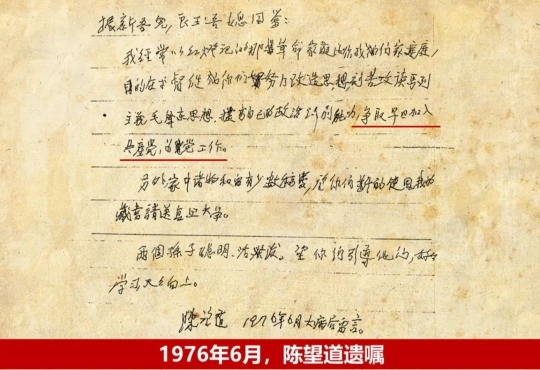 振新吾儿,良玉吾媳同鉴:
我经常以红灯记的那首革命家庭
目的在于督促你们努力改造思想刻苦攻读马列
主义毛泽东思想,提高自己的政治识别能力,争取早日加入
共产党,为党工作。
另外家中诸物和
藏书请送复旦大学。
两个孙子聪明、活泼。望你们引导他们,好好
学习天天向上。
陈望道 1976年6月 留言。
1976年6月,陈望道遗嘱